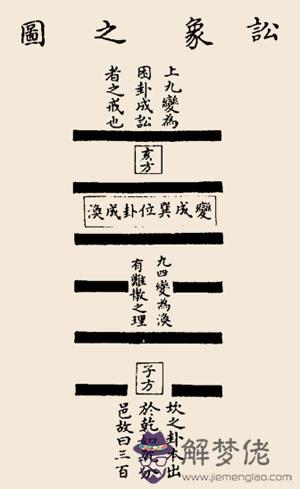 訟象之圖
上九變為
困卦成訟
者之戒也
亥方
變成巽位卦成渙
九四變為渙
有離散之理
子方
坎之卦本出
於乾
邑故曰三百
解梦佬
www.jiemenglao.com